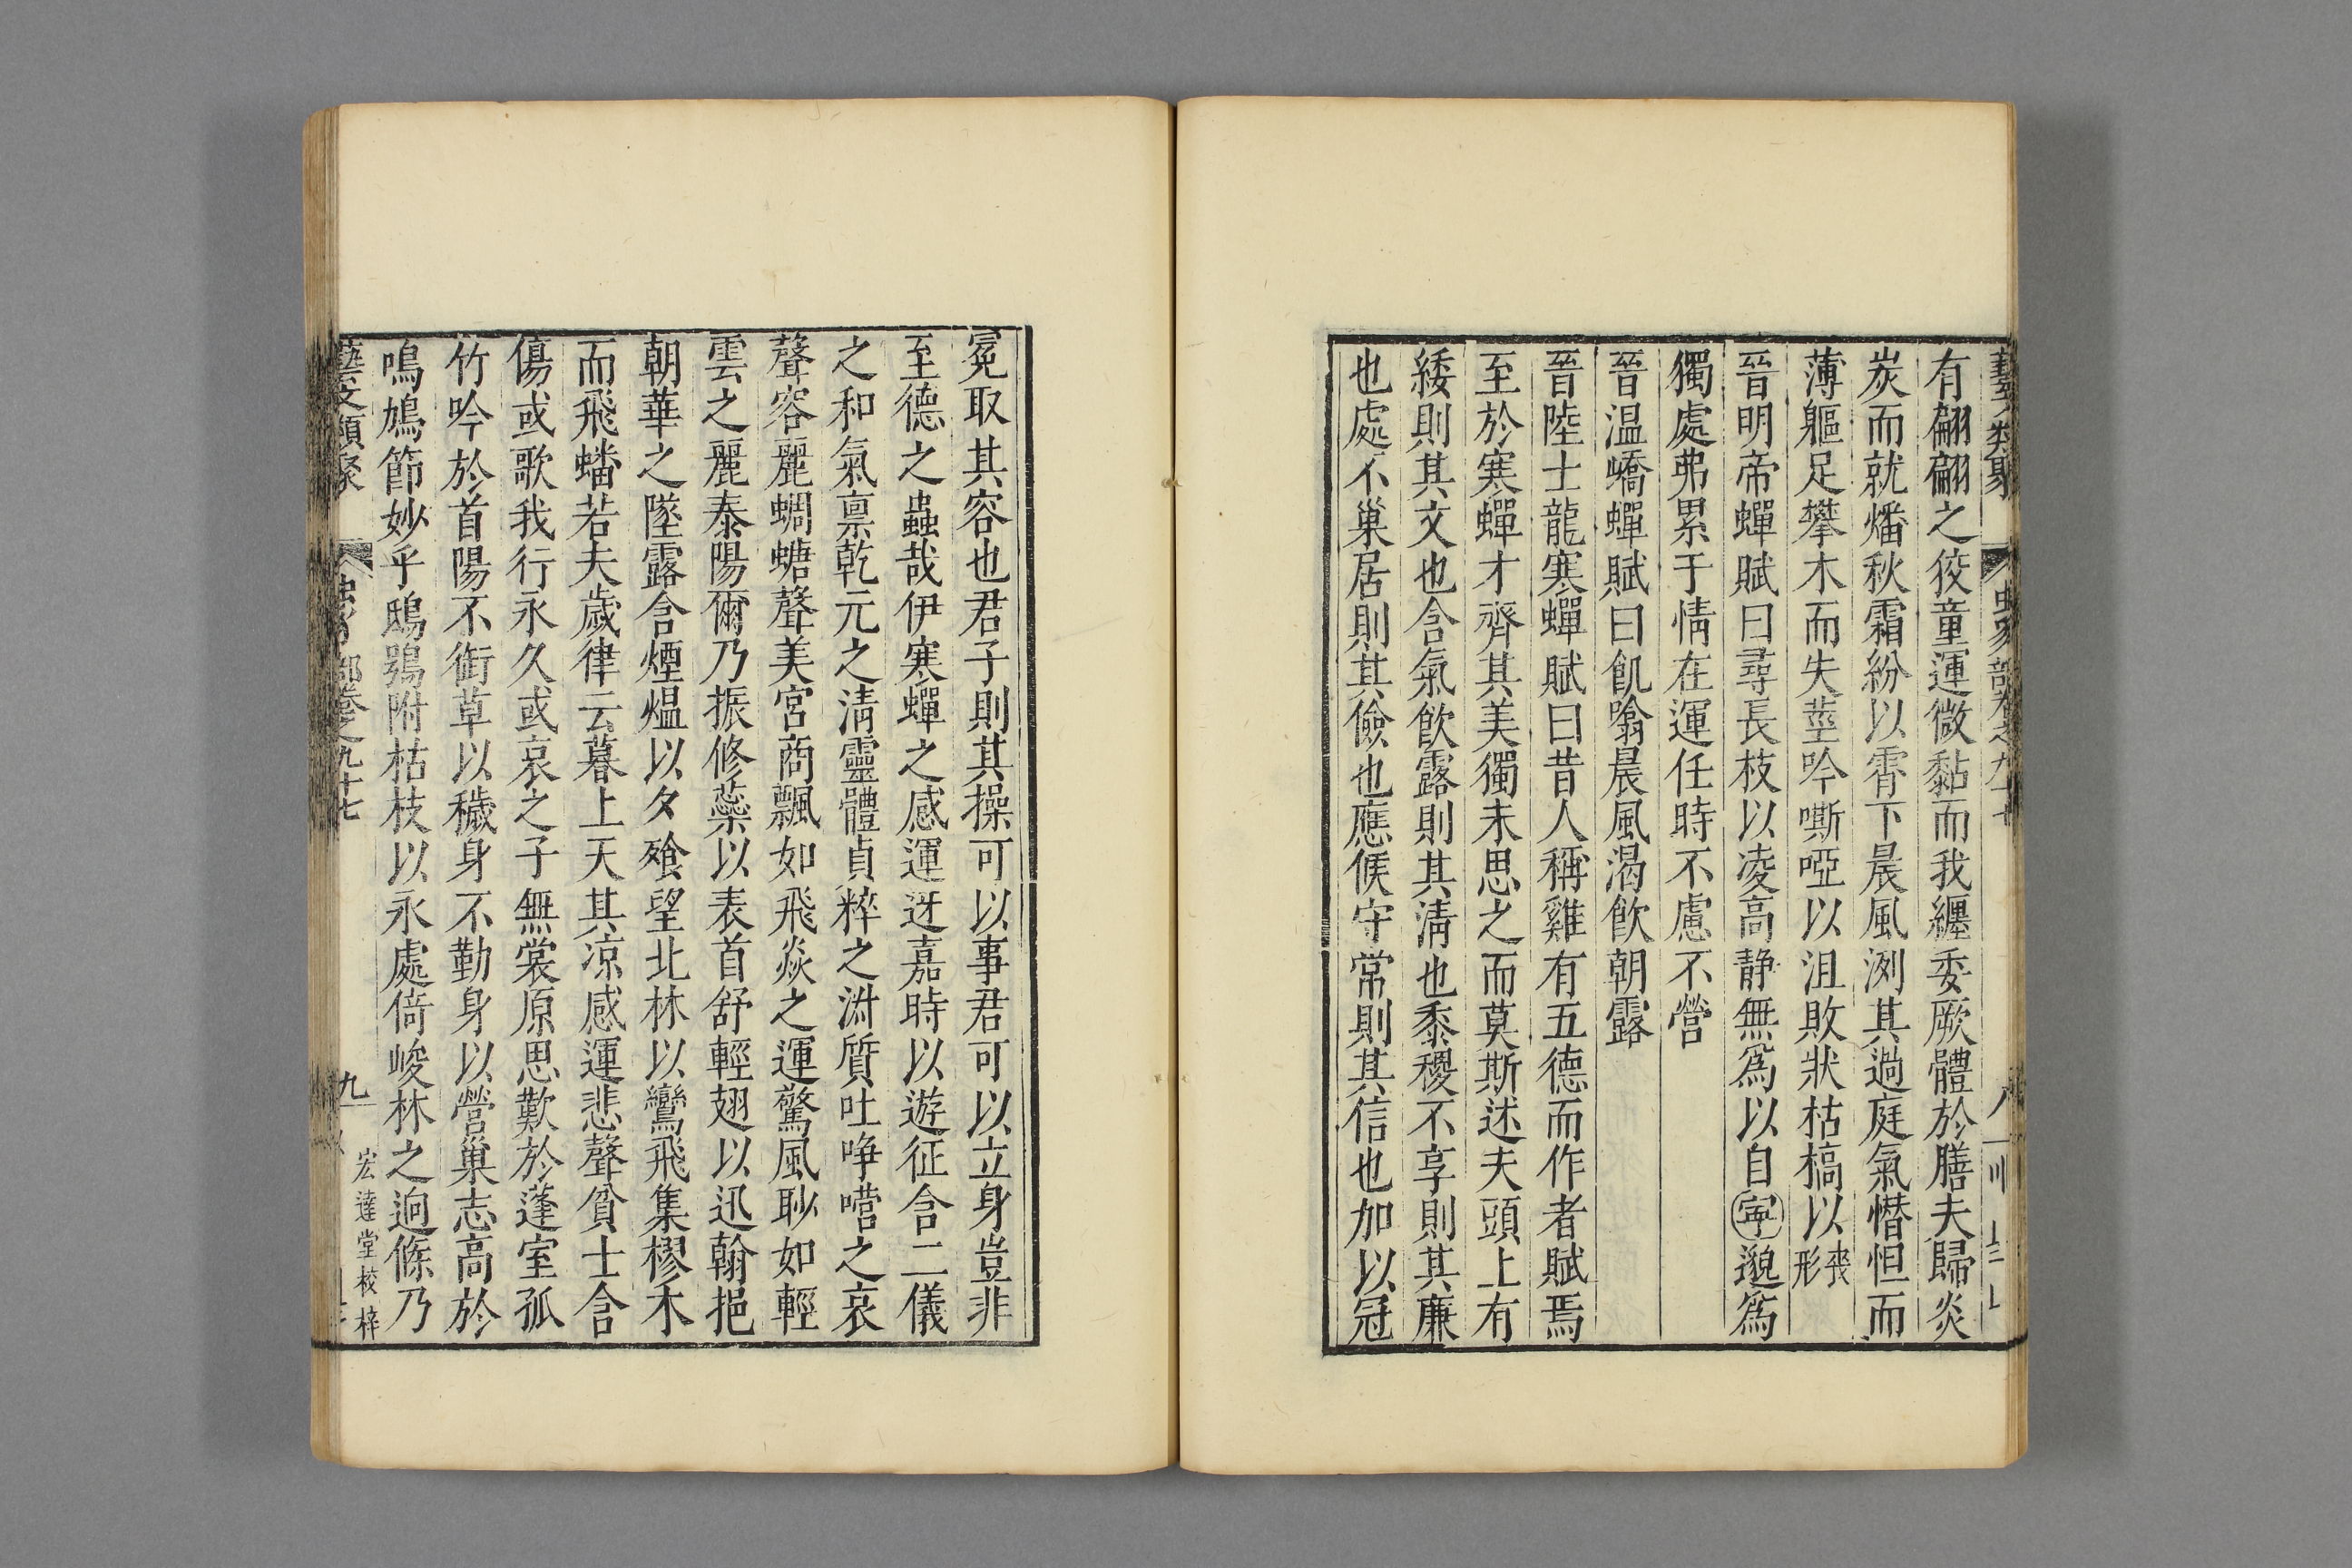 有翩翩之狡童運微黏而我纏委厥體於膳夫歸炎
炭而就燔秋霜紛以霄下晨風洌其過庭氣憯怛而
薄軀足攀木而失莖吟嘶啞以沮敗狀枯槁以喪形
晉明帝蟬賦曰尋長枝以凌高静無為以自寧邈為
獨處弗累于情在運任時不慮不營
晉温嶠蟬賦曰飢噏晨風渴飲朝露
晉陸士龍寒蟬賦曰昔人稱雞有五德而作者賦焉
至於寒蟬才齊其美獨未思之而莫斯述夫頭上有
緌則其文也含氣飲露則其清也黍稷不享則其廉
也處不巢居則其儉也應候守常則其信也加以冠
冕取其容也君子則其操可以事君可以立身豈非
至德之蟲哉伊寒蟬之感運迓嘉時以遊征含二儀
之和氣禀乾元之清靈體貞粹之淑質吐哗噾之哀
聲容麗蜩螗聲美宮商飄如飛焱之運驚風眇如輕
雲之麗泰陽爾乃振修蘂以表首舒輕翅以迅翰挹
朝華之墜露含煙熅以夕飱望北林以鸞飛集樛木
而飛蟠若夫歲律云暮上天其凉感運悲聲貧士含
傷或歌我行永久或哀之子無裳原思歎於蓬室孤
竹吟於首陽不銜草以穢身不勤身以營巢志高於
鳴鳩節妙乎鴟鴞附枯枝以永處倚峻林之逈條乃
藝文類聚 部卷之九十七 九
宏達堂校梓